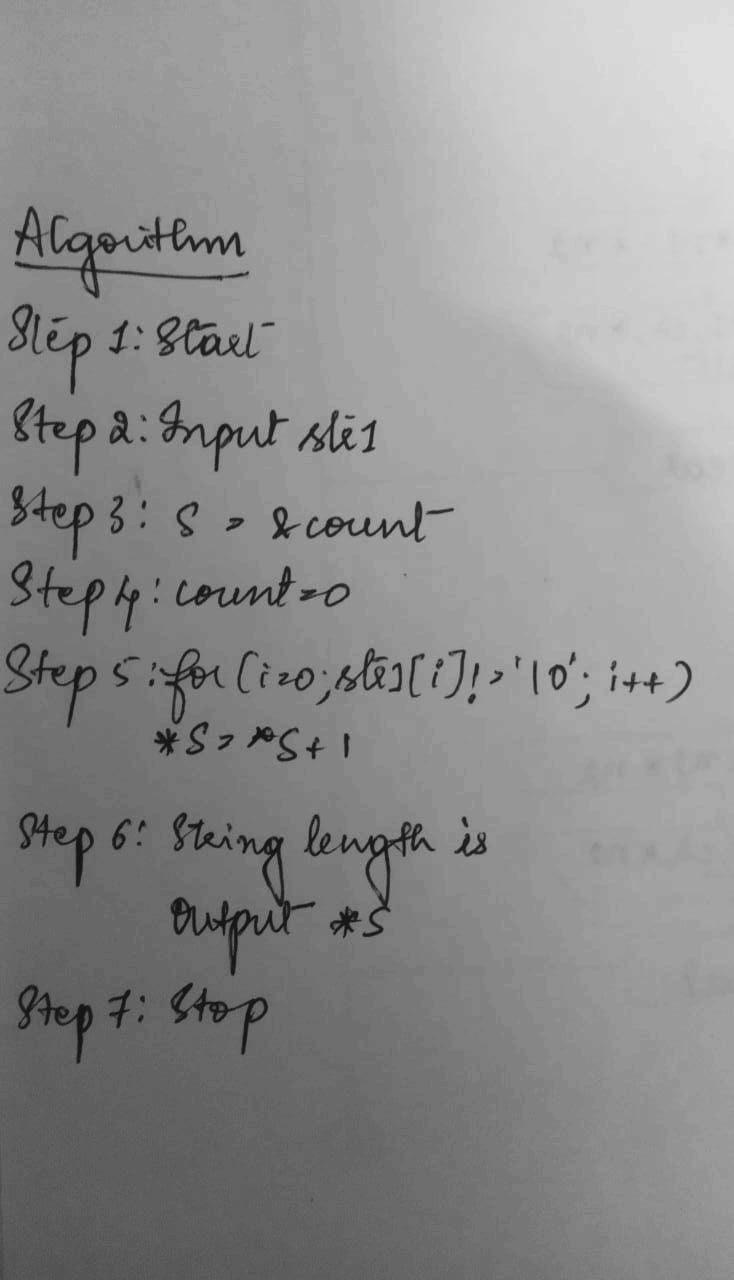 Algorithm
Step 1: Start
Step 2: Input str1
Step 3: S = &count
Step 4: count=0
Step 5: for (i=0; str1[i]!='\0'; i++)
*S = *S+1
Step 6: String length is
Output *S
Step 7: Stop